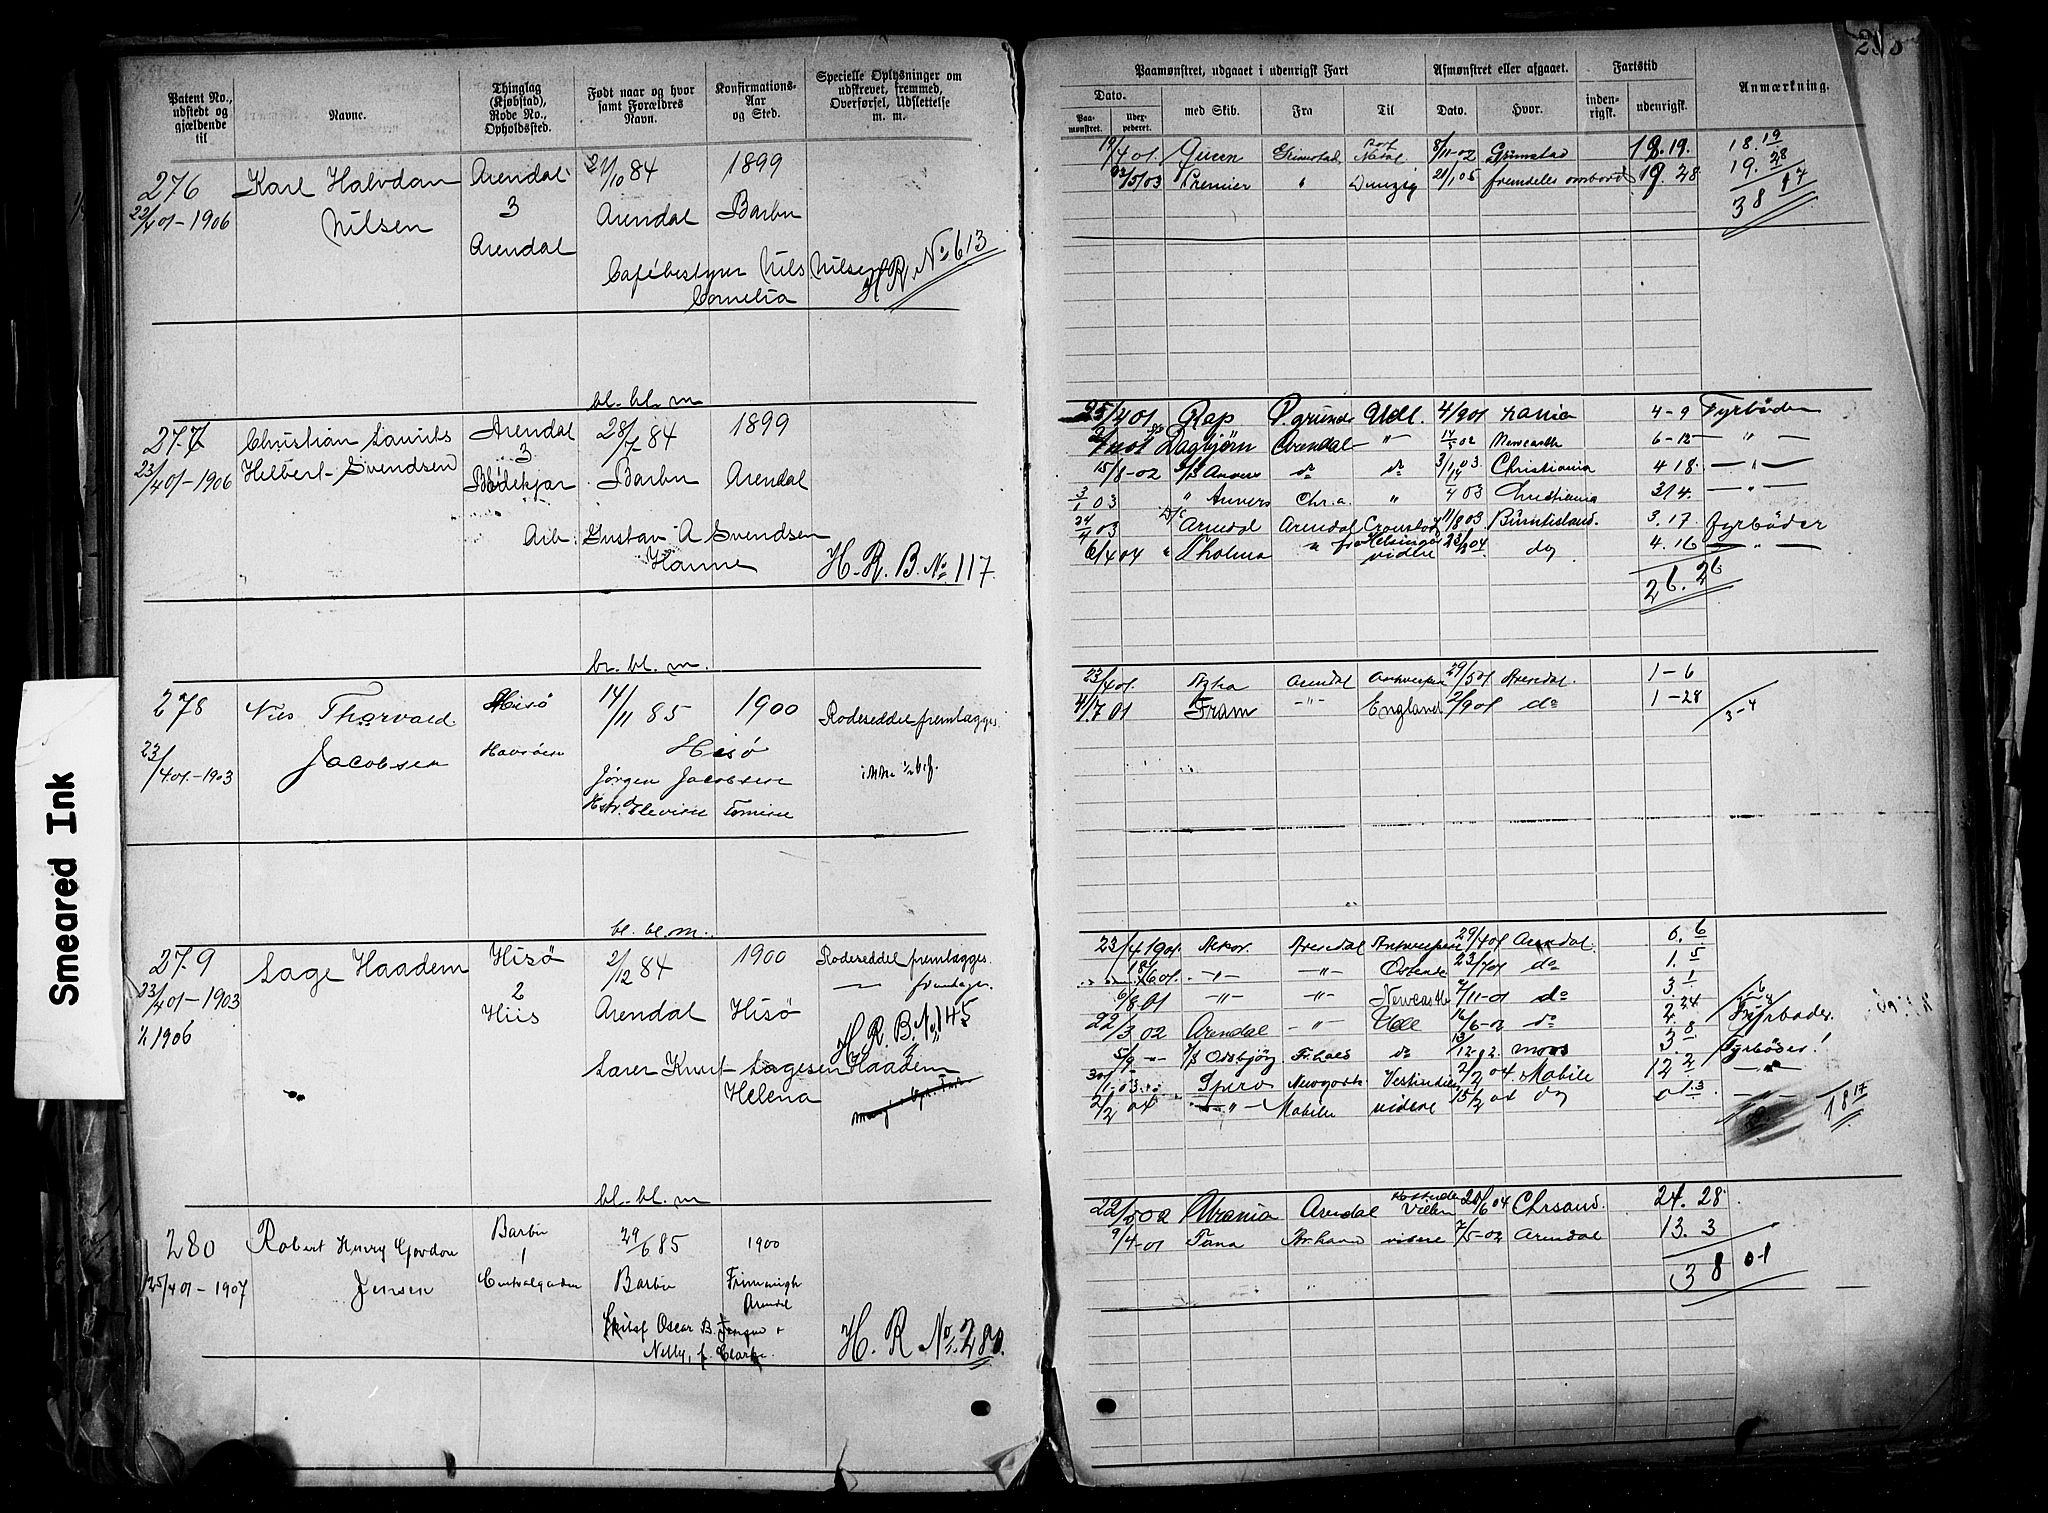 Smeared Ink
Patent No., udstedt og gjældende til
Navne.
Thinglag (Kjøbstad), Rode No., Opholdssted.
Født naar og hvor samt Forældres Navn.
Konfirmations- Aar og Sted.
Specielle Oplysninger om udskrevet, fremmed, Overførsel, Udslettelse m. m.
276 Karl Halvdan Arendal 21/10 84 1899
22/4 01-1906 Nilsen 3 Arendal Barbu
Arendal
Cafébestyrer Nils Nilsen H.R. No. 613
Cornelia
bl. bl. m
277 Christian Laurits Arendal 28/7 84 1899
23/4 01-1906 Helbert Svendsen 3 Barbu Arendal
Bødekjær
Arb. Gustav A Svendsen
Hanne H. R. B. No. 117.
br. bl. m.
278 Nils Thorvald Hisø 14/11 85 1900 Rodeseddel fremlægges
23/4 01-1903 Jacobsen Havsøen Hisø
Jørgen Jacobsen
bl. bl. m.
279 Aage Haadem Hisø 2/12 84 1900 Rodeseddel fremlægges.
23/4 01-1903 2
1/1 1906 Hiis Arendal Hisø
H. R. B. No. 145
Haadem
Helena
bl. bl. m
280 Robert Henry Gordon Barbu 29/6 85 1900
1
25/4 01-1907 Jensen Centralgaarden Barbu Frimenigh
Arendal
Oscar B. Jensen
Nelly, f. Clark. H. R No. 280.
Paamønstret, udgaaet i udenrigsk Fart
Afmønstret eller afgaaet.
Fartstid
Anmærkning.
Dato.
Paa- mønstret.
Udex- pederet.
med Skib.
Fra
Til
Dato.
Hvor.
inden- rigsk.
udenrigsk.
19/4 01. Queen Grimstad Port Natal 8/11-02 Grimstad 18.19. 18.19
22/5 03 Premier " Danzig 21/1 05 fremdeles ombord 19 28 19.28
38 17
25/4 01 Rap P.grund Udl. 4/9 01 4-9 Fyrbøder
Dagbjørn Arendal -"- 14/5 02 Newcastle 6-12 - " -
15/8-02 D/S Anvers do do 3/1 03. Christiania 4 18. - " -
3/1 03 " Anvers Chr.a. " 14/4 03 Christiania 3 14. - " -
24/4 03 D/S Arendal Arendal Cronstadt 11/8 03 Burntisland. 3.17. Fyrbøder
6/4 04 " Tholma " fra Helsingør videre 23/8 04 do 4.16 - " -
26. 26
23/4 01. Arendal Antwerpen 29/5 01 Arendal. 1-6
4/7 01 Fram -"- England 2/9 01 do 1-28
3-4
23/4 1901. Arendal Antwerpen 29/4 01 Arendal. 0. 6
18/6 01. -"- -"- Ostende 23/7 01 do 1. 5
6/8 01 -"- -"- Newcastle 7/11-01 do 3. 1
22/3 02 Arendal -"- Udl 16/6-02 do 2. 24 Fyrbøder.
5/9 -"- D/S Odsbjørg Fr.hald do 13/12-02. moss 3. 8 Fyrbøder!
Spero Newyork Vestindien 2/2 04. Mobile 12. 2 -"-
2/2 04 -"- Mobile videre 15/2 04 do 0. 13 - -
18 17
22/5 02 Urania Arendal 20/6 04 Chrsand. 24. 28.
9/4-01 Fana videre 7/5-02 Arendal 13. 3
38 01